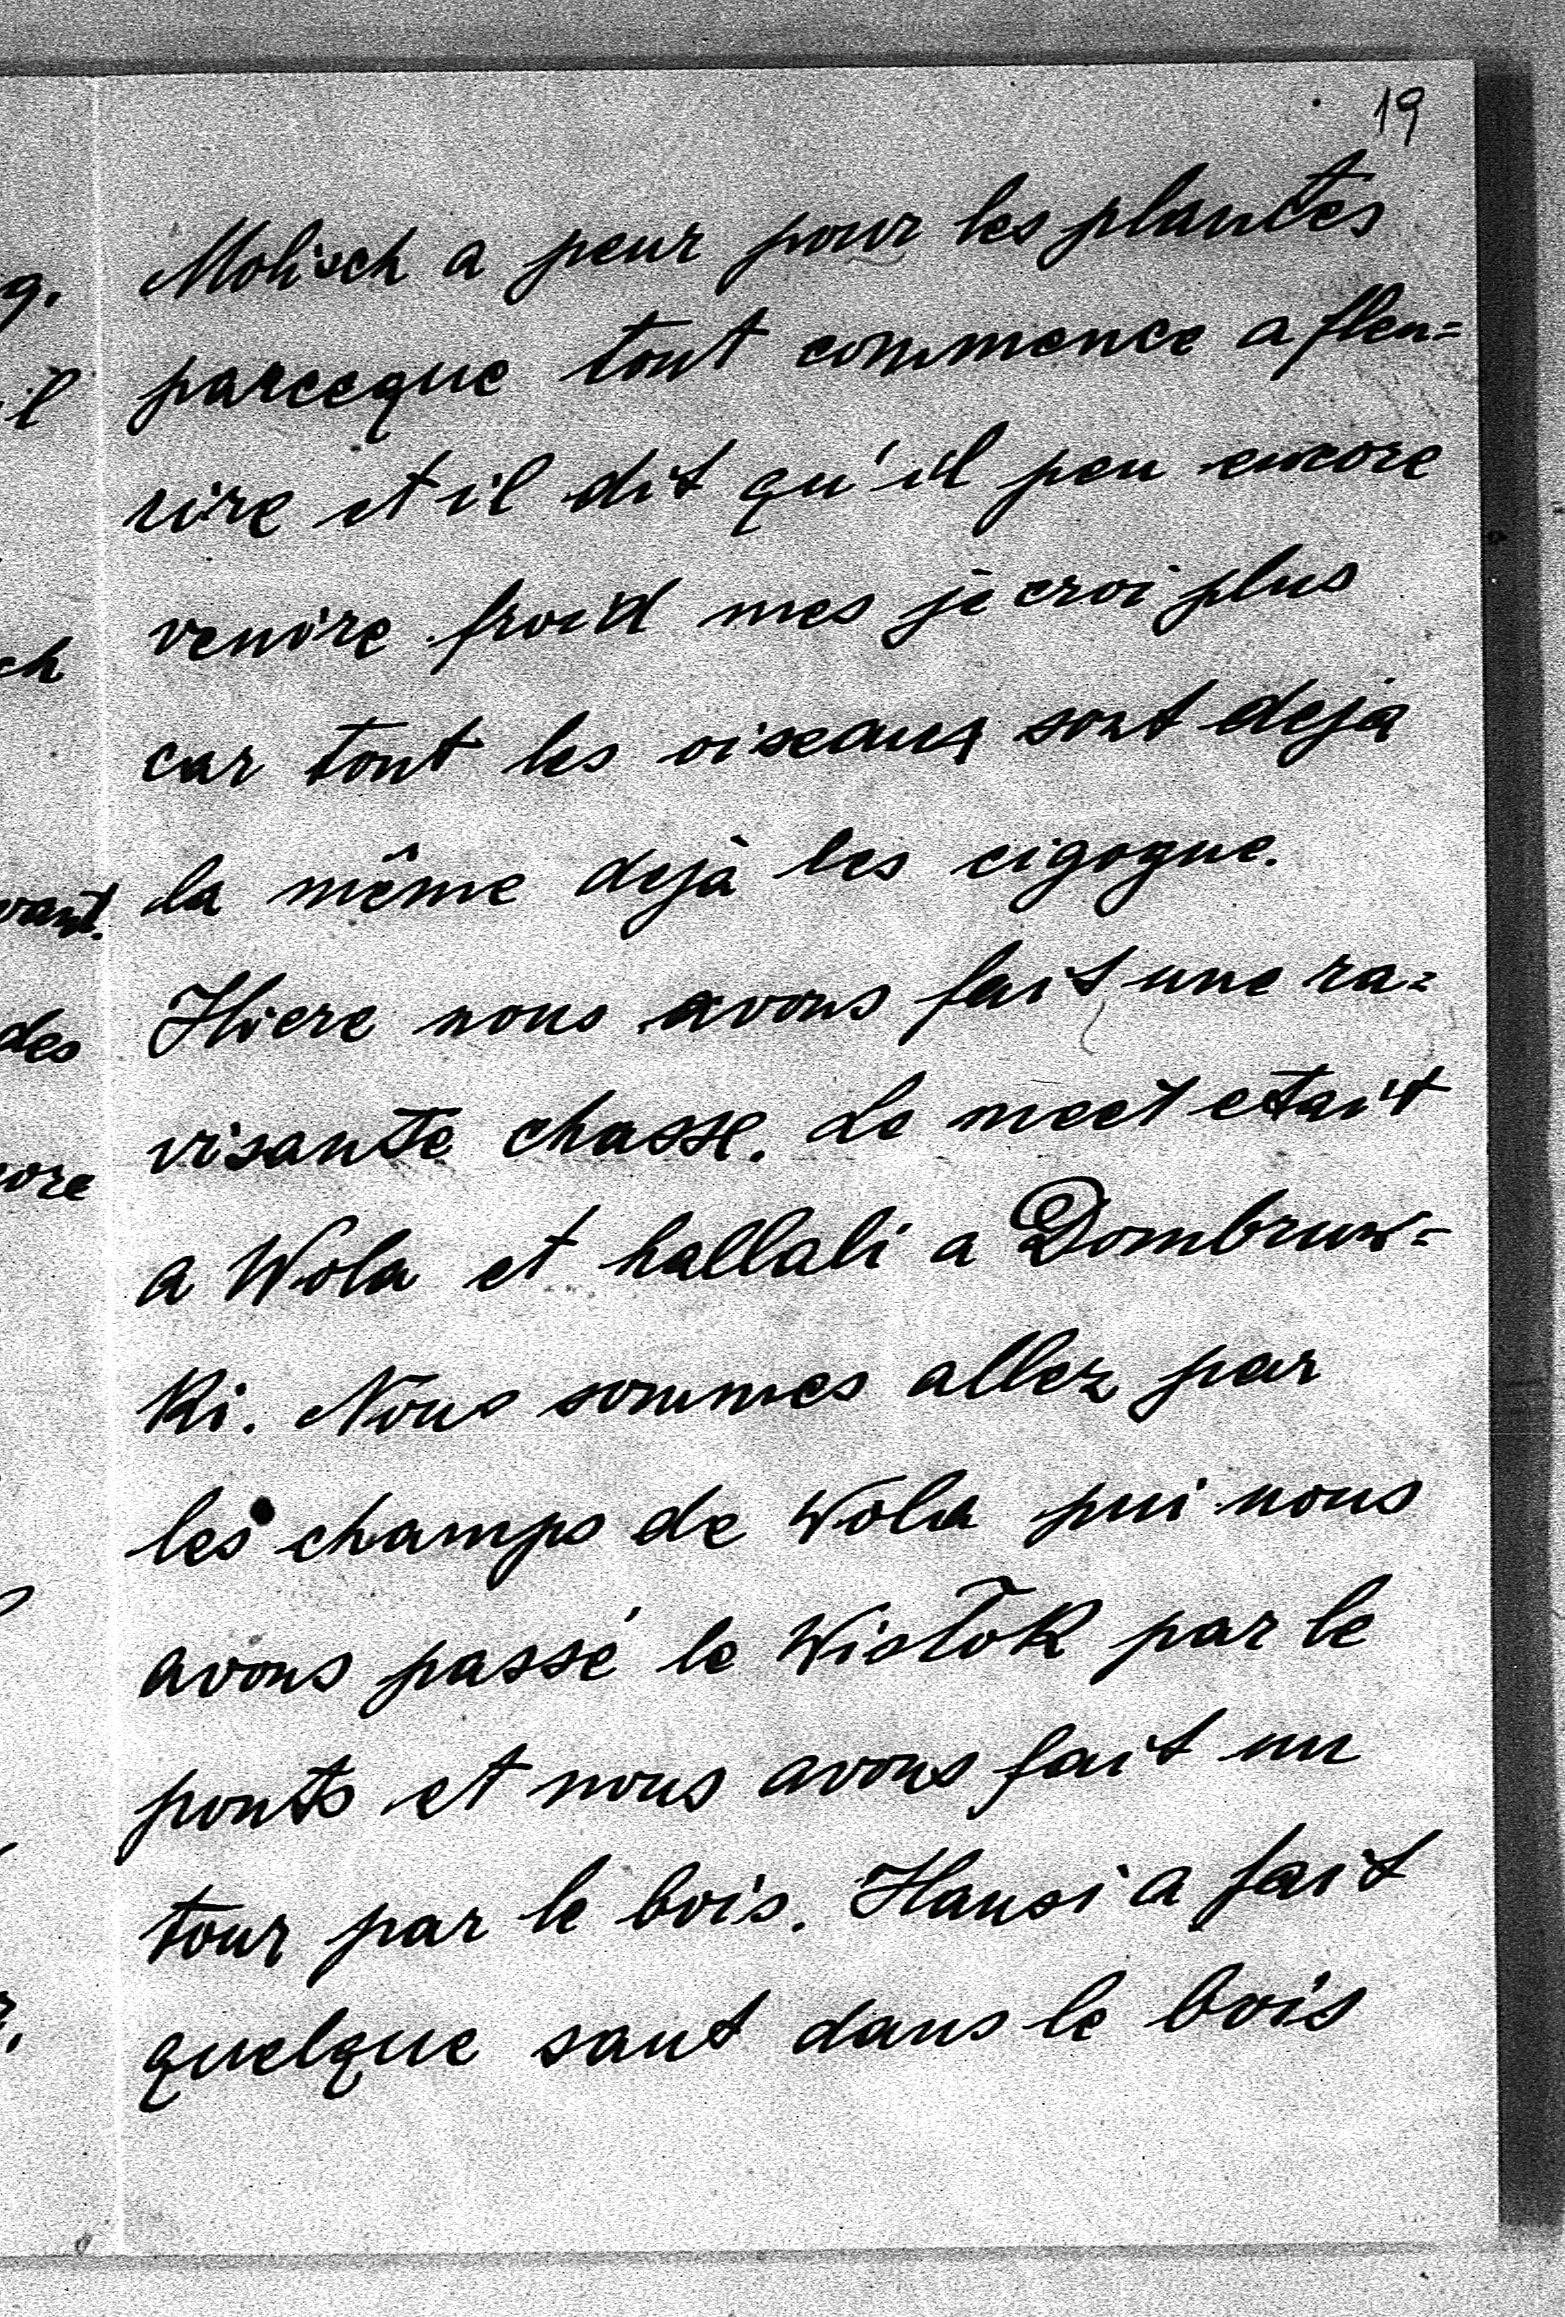 19
Molisch a peur pour les plantes
parceque tout commence a fleu=
rire et il dit qu'il peu encore
venire froid mes je croi plus
car tout les oiseaux sont deja
la même dejà les cigogne.
Hiere nous avons fait une ra=
visante chasse. Le meet etait
a Wola et hallali a Dombruw=
ki. Nous sommes allez par
les champs de Wola pui nous
avons passé le Wistok par le
ponts et nous avons fait un
tour par le bois. Hansi a fait
quelque saut dans le bois